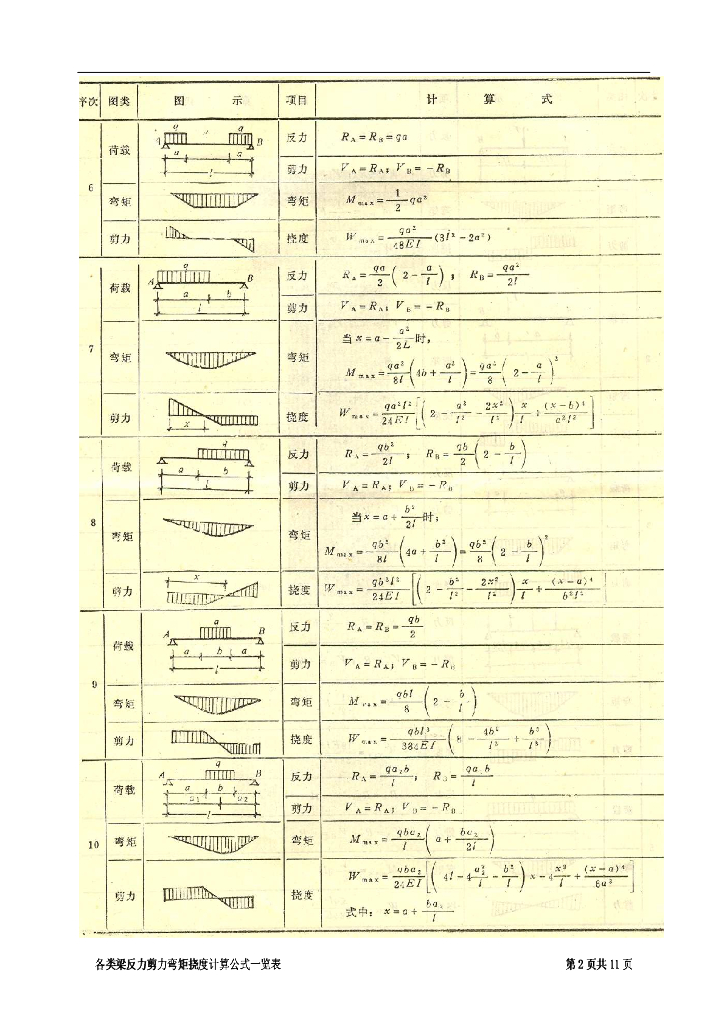 序次 图类 图 示 项目 计 算 式
6
荷载
q q
A B
a a
l
反力 R_A = R_B = qa
剪力 V_A = R_A; V_B = - R_B
弯矩 弯矩 M_max = 1/2 qa²
剪力 挠度 W_max = qa²/48EI (3l² - 2a²)
7
荷载
q
A B
a b
l
反力 R_A = qa/2 (2 - a/l) ; R_B = qa²/2l
剪力 V_A = R_A; V_B = - R_B
弯矩 弯矩
当 x = a - a²/2L 时,
M_max = qa²/8l (4b + a²/l) = qa²/8 (2 - a/l)²
剪力 x 挠度 W_max = qa²l²/24EI [(2 - a²/l² - 2x²/l²) x/l + (x-b)⁴/a²l²]
8
荷载
q
a b
L
反力 R_A = qb²/2l ; R_B = qb/2 (2 - b/l)
剪力 V_A = R_A; V_B = - R_B
弯矩 弯矩
当 x = a + b²/2l 时;
M_max = qb²/8l (4a + b²/l) = qb²/8 (2 - b/l)²
剪力 x 挠度 W_max = qb²l²/24EI [(2 - b²/l² - 2x²/l²) x/l + (x-a)⁴/b²l²]
9
荷载
q
A B
a b a
l
反力 R_A = R_B = qb/2
剪力 V_A = R_A; V_B = - R_B
弯矩 弯矩 M_max = qbl/8 (2 - b/l)
剪力 挠度 W_max = qbl³/384EI (8 - 4b²/l² + b³/l³)
10
荷载
q
A B
a b
a₁ a₂
l
反力 R_A = qa₂b/l ; R_B = qa₁b/l
剪力 V_A = R_A; V_B = - R_B
弯矩 弯矩 M_max = qba₂/l (a + ba₂/2l)
剪力 挠度 W_max = qba₂/24EI [(4l - 4 a₂²/l - b²/l) x - 4 x³/l + (x-a)⁴/ba₂]
式中: x = a + ba₂/l
各类梁反力剪力弯矩挠度计算公式一览表 第 2 页共 11 页